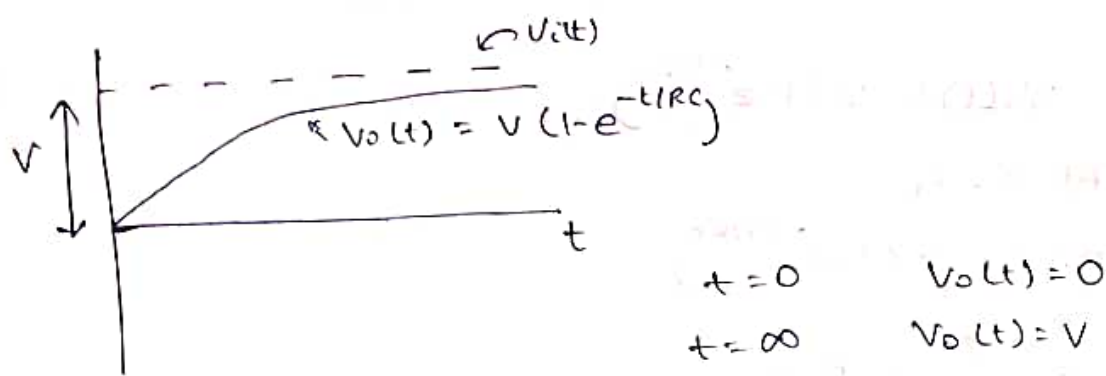 Vi(t)
V
Vo(t) = V (1-e^-t/RC)
t
t = 0 Vo(t) = 0
t = ∞ Vo(t) = V